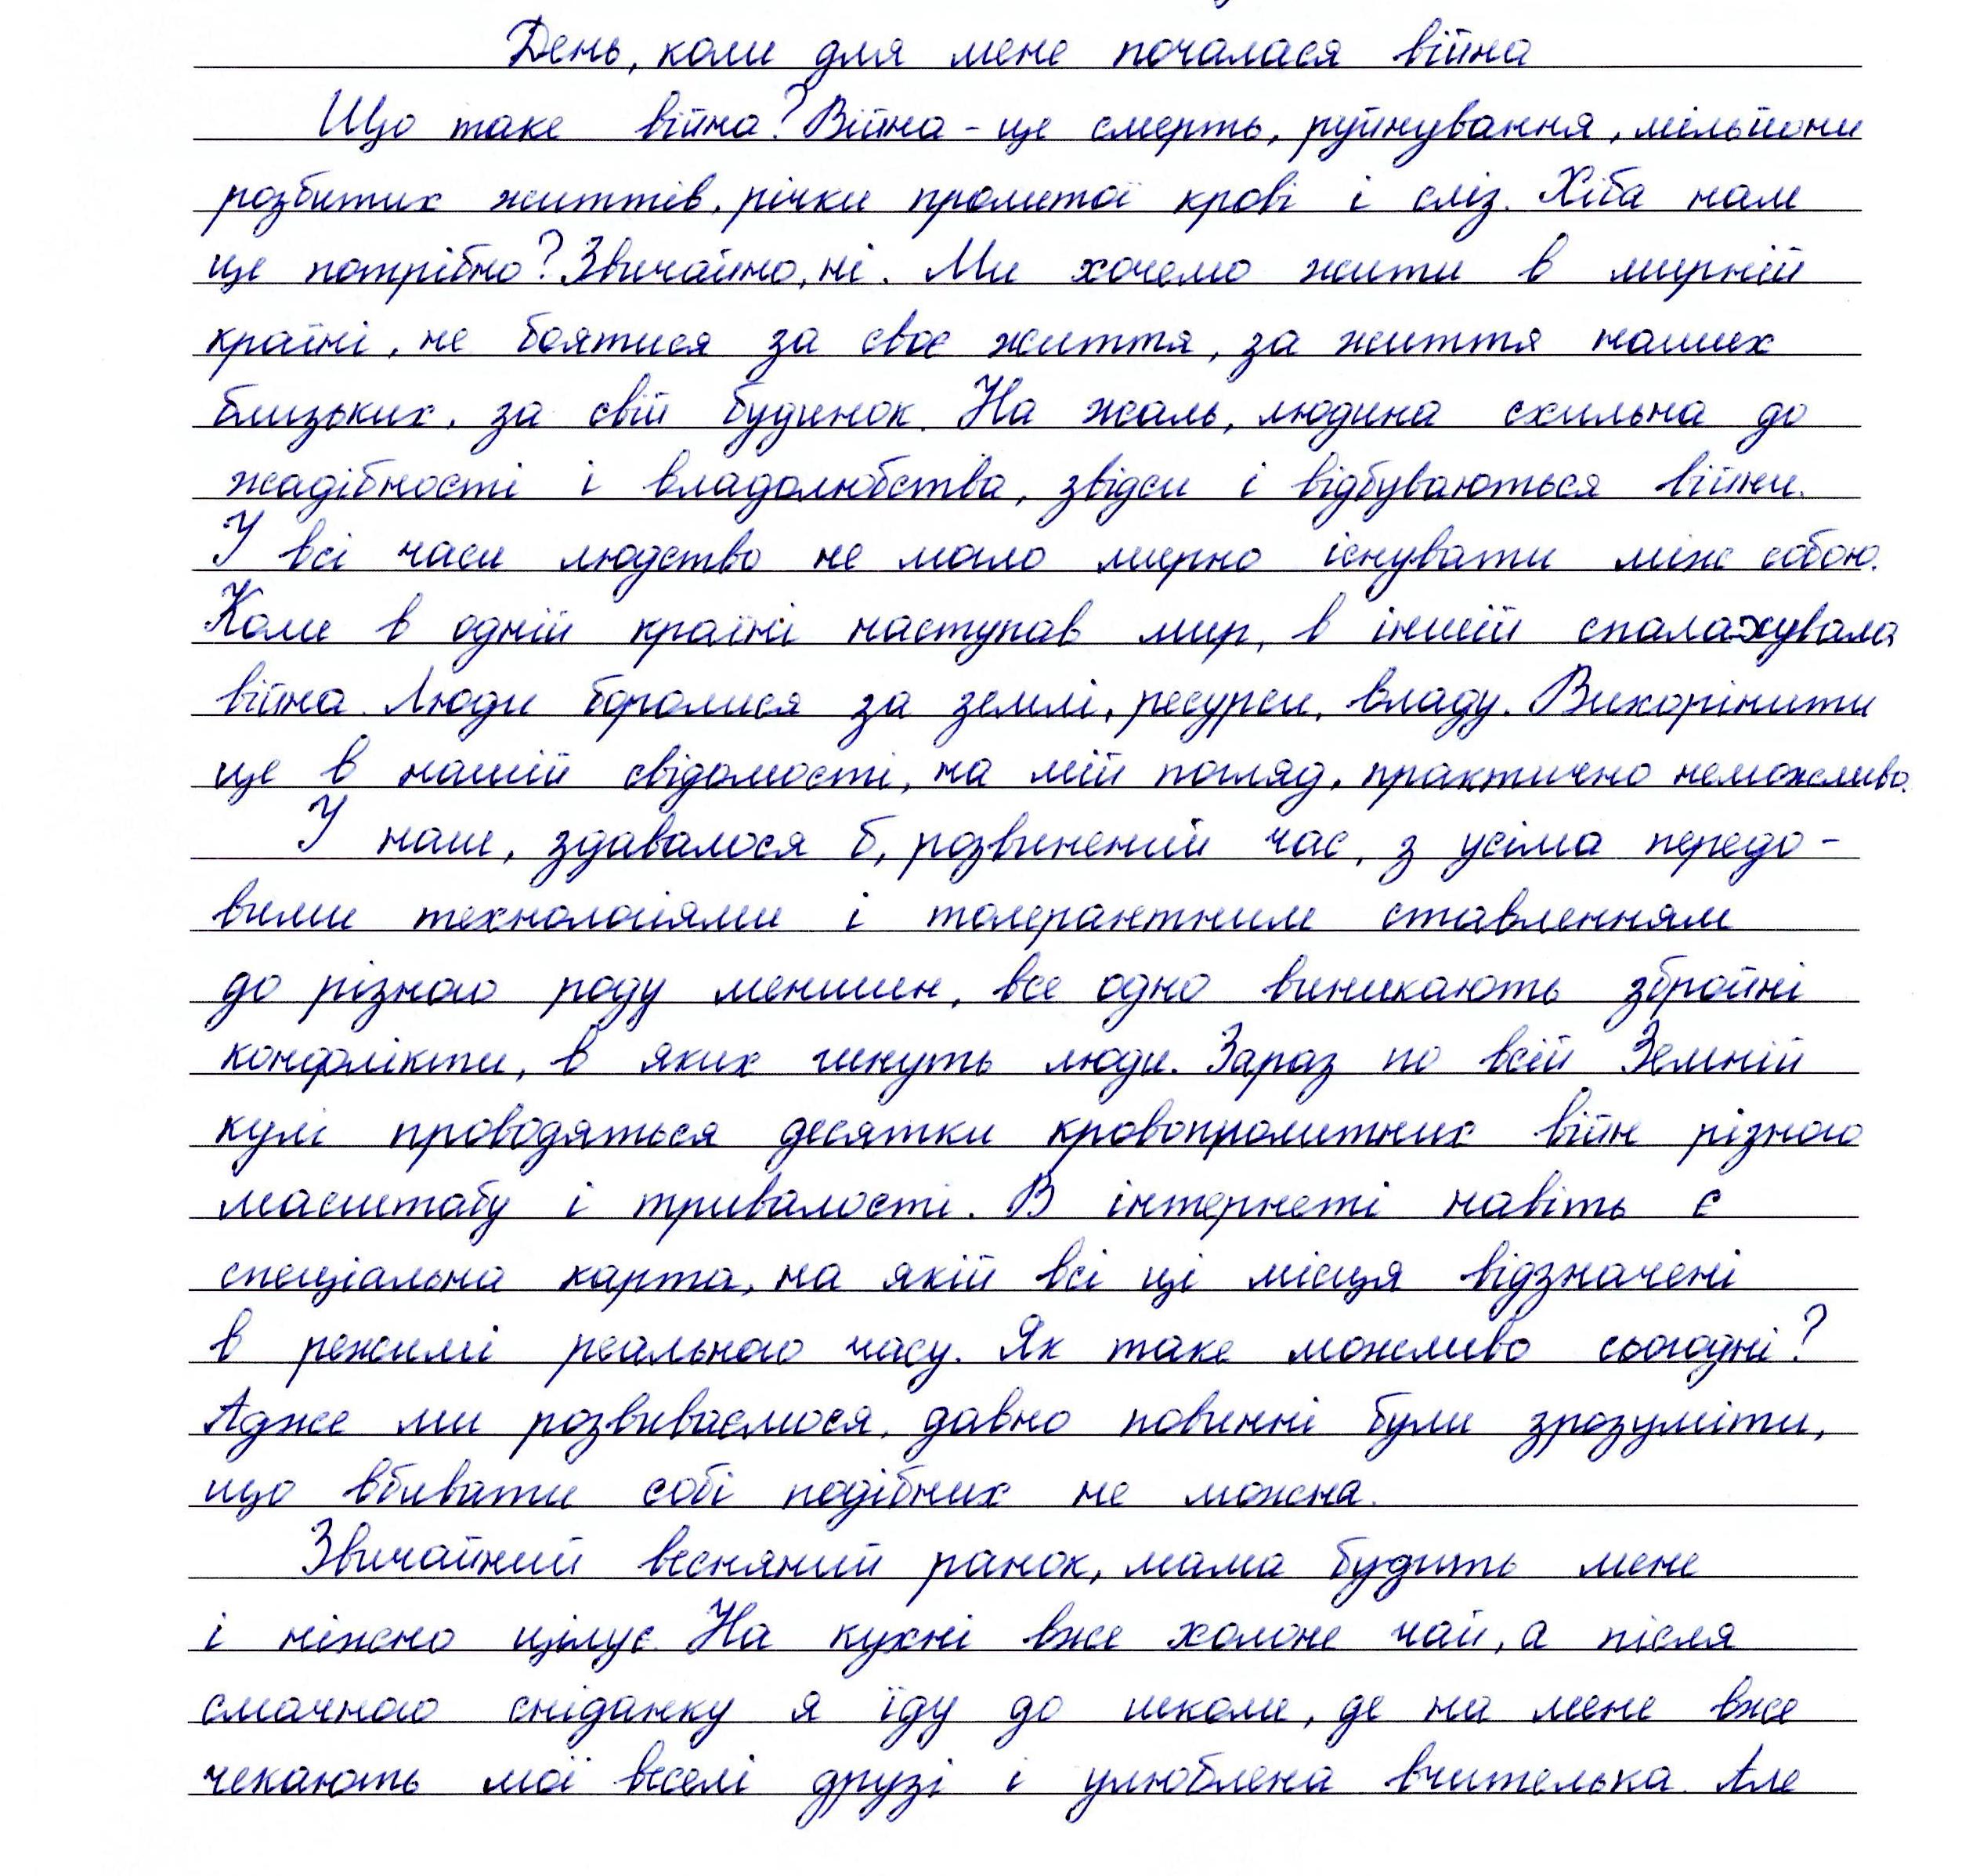 День, коли для мене почалася війна
Що таке війна? Війна - це смерть, руйнування, мільйони
розбитих життів, річки пролитої крові і сліз. Хіба нам
це потрібно? Звичайно, ні. Ми хочемо жити в мирній
країні, не боятися за своє життя, за життя наших
близьких, за свій будинок. На жаль, людина схильна до
жадібності і владолюбства, звідси і відбуваються війни.
У всі часи людство не мало мирно існувати між собою.
Коли в одній країні наступав мир, в іншій спалахувала
війна. Люди боролися за землі, ресурси, владу. Викорінити
це в нашій свідомості, на мій погляд, практично неможливо.
У наш, здавалося б, розвинений час, з усіма передо-
вими технологіями і толерантним ставленням
до різного роду меншин, все одно виникають збройні
конфлікти, в яких гинуть люди. Зараз по всій Земній
кулі проводяться десятки кровопролитних війн різного
масштабу і тривалості. В інтернеті навіть є
спеціальна карта, на якій всі ці місця відзначені
в режимі реального часу. Як таке можливо сьогодні?
Адже ми розвиваємося, давно повинні були зрозуміти,
що вбивати собі подібних не можна.
Звичайний весняний ранок, мама будить мене
і ніжно цілує. На кухні вже холоне чай, а після
смачного сніданку я їду до школи, де на мене вже
чекають мої веселі друзі і улюблена вчителька. Але